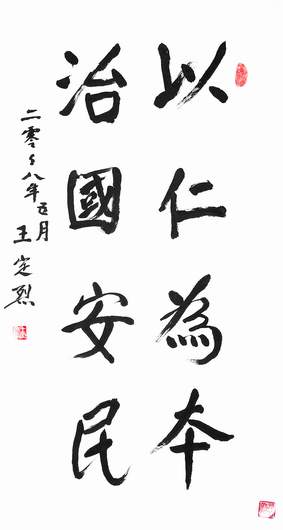 以仁為本
治國安民
二零零八年五月
王定烈